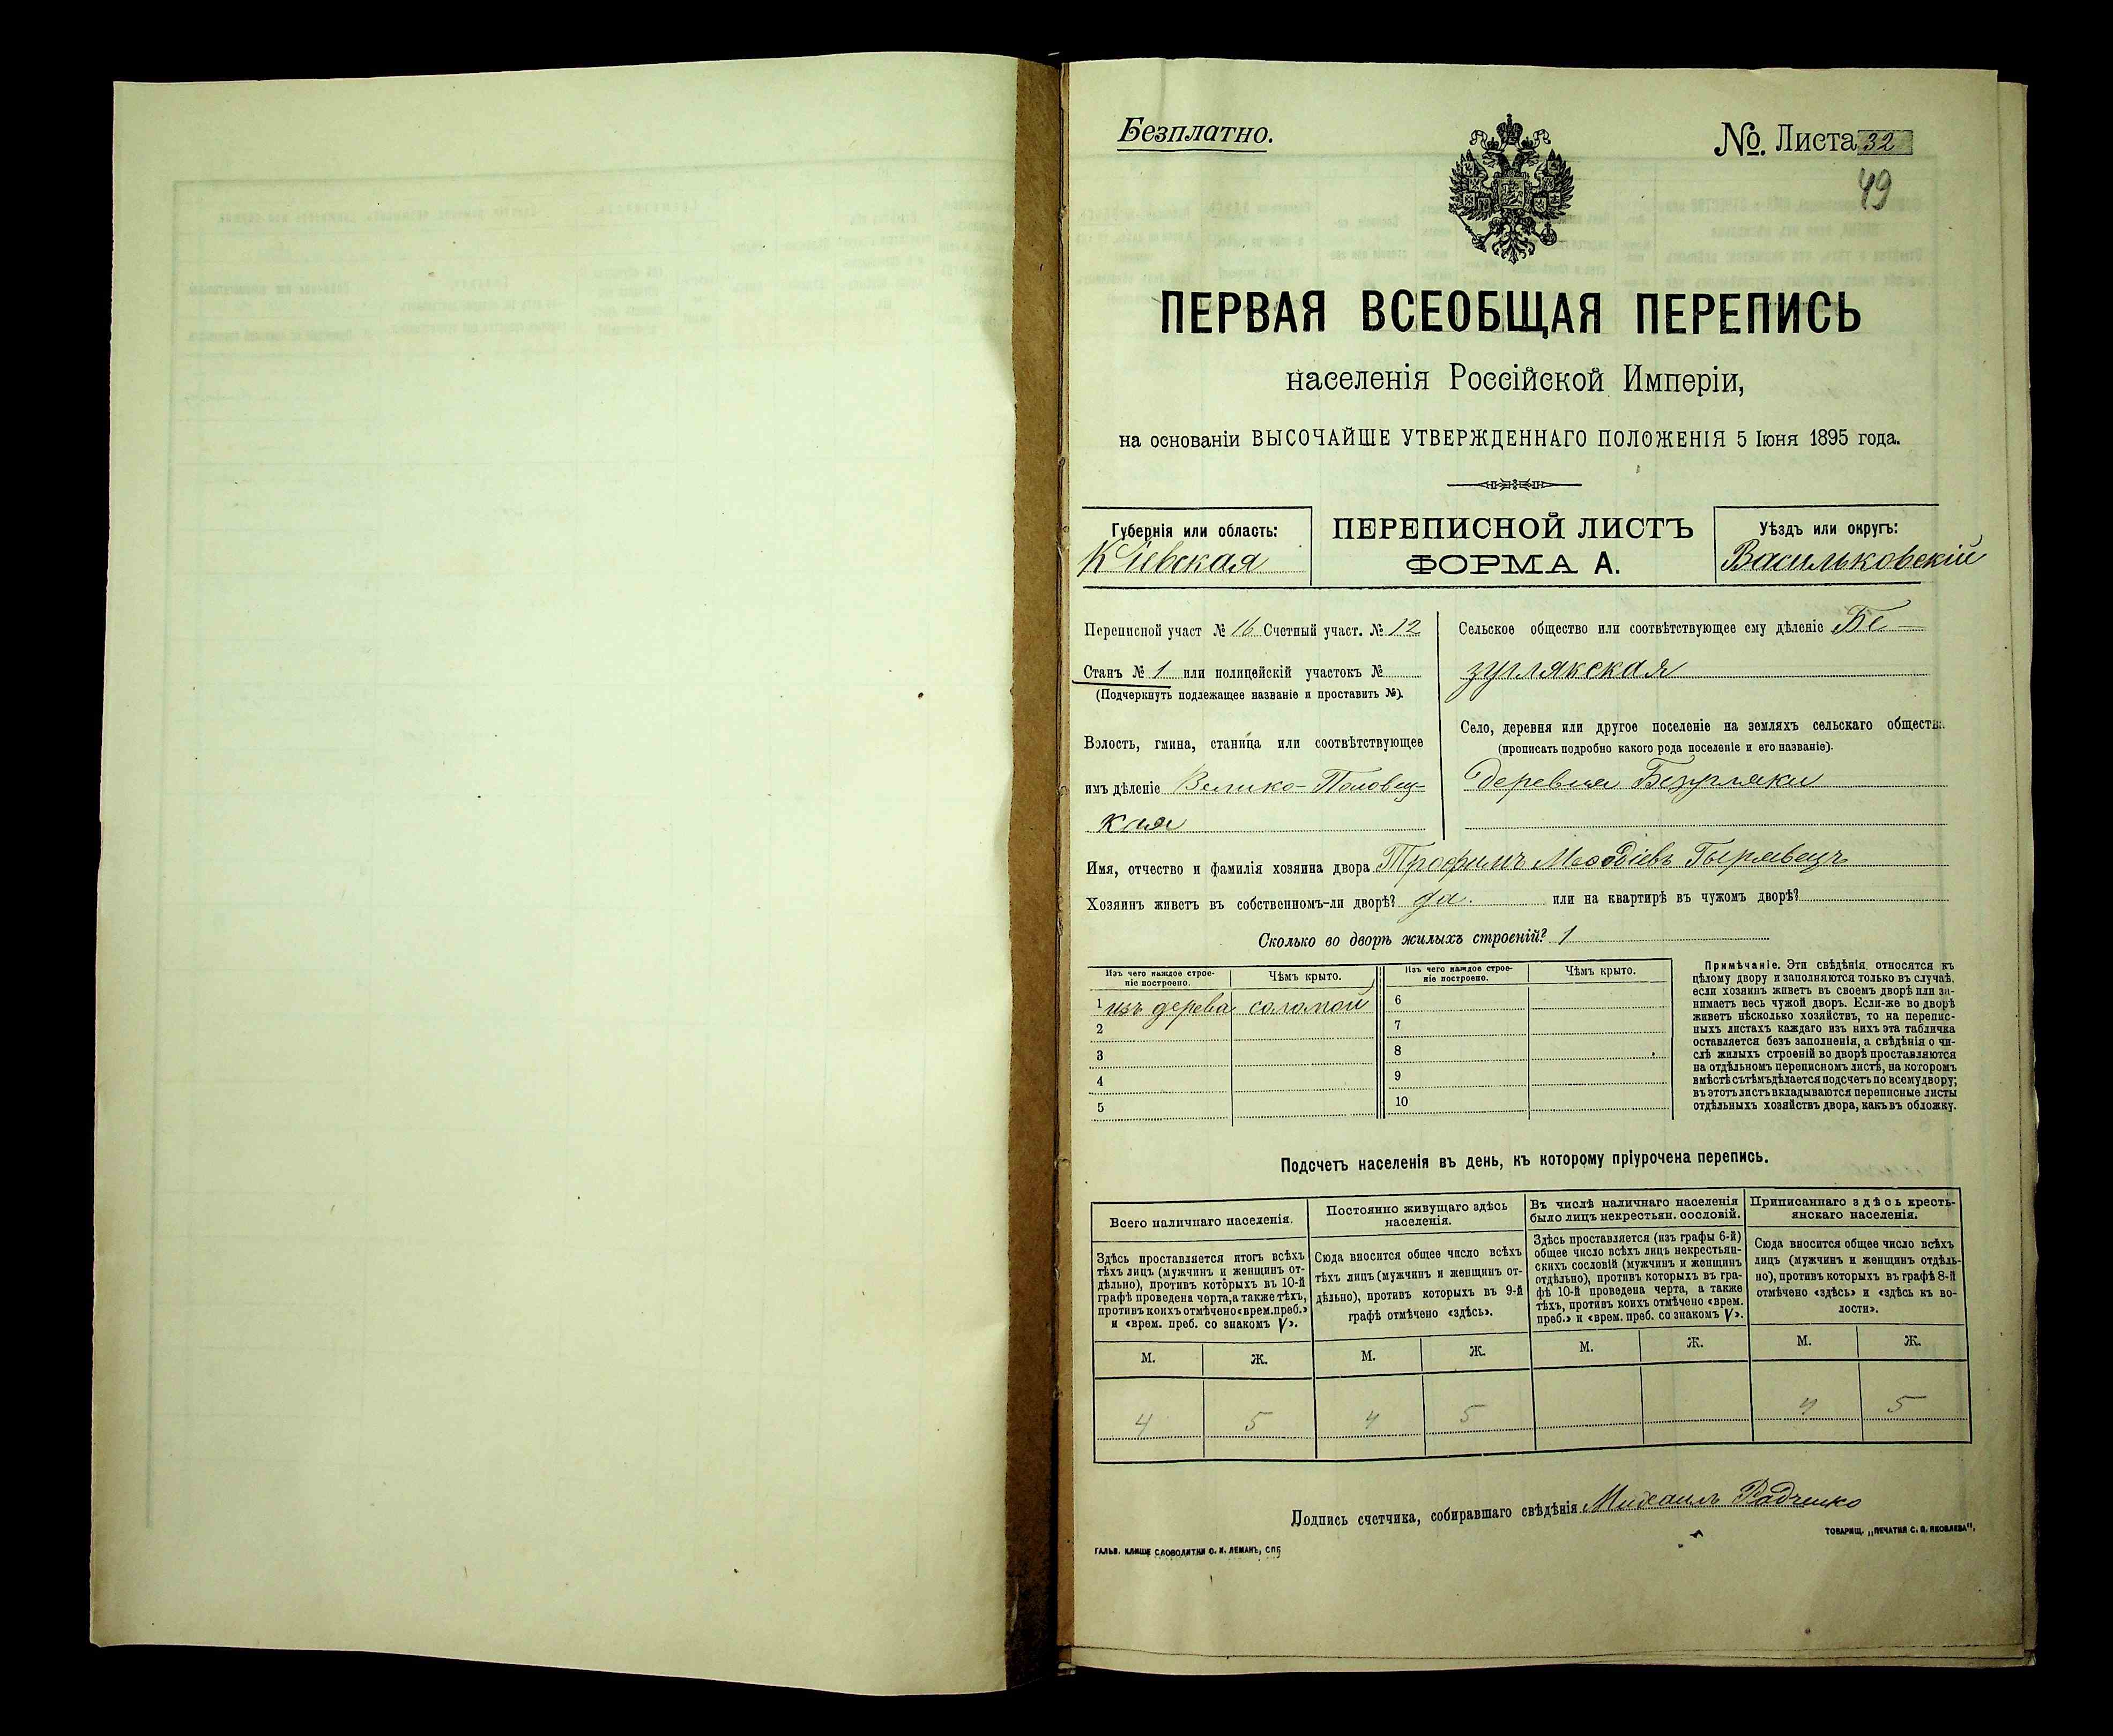 Безплатно.
№. Листа 32
49
ПЕРВАЯ ВСЕОБЩАЯ ПЕРЕПИСЬ
населенія Россійской Имперіи,
на основаніи ВЫСОЧАЙШЕ УТВЕРЖДЕННАГО ПОЛОЖЕНІЯ 5 Іюня 1895 года.
Губернія или область:
Кіевская
ПЕРЕПИСНОЙ ЛИСТЪ
ФОРМА А.
Уѣздъ или округъ:
Васильковскій
Переписной участ № 16 Счетный участ. № 12
Станъ № 1 или полицейскій участокъ №
(Подчеркнуть подлежащее названіе и проставить №).
Волость, гмина, станица или соотвѣтствующее
имъ дѣленіе Велико-Половец-
кая
Сельское общество или соотвѣтствующее ему дѣленіе Бе-
зуглякская
Село, деревня или другое поселеніе на земляхъ сельскаго общества
(прописать подробно какого рода поселеніе и его названіе).
деревня Безугляки
Имя, отчество и фамилія хозяина двора Трофимъ Меѳодіевъ
Хозяинъ живетъ въ собственномъ-ли дворѣ? да. или на квартирѣ въ чужомъ дворѣ?
Сколько во дворѣ жилыхъ строеній? 1
Изъ чего каждое строе-
ніе построено.
Чѣмъ крыто.
Изъ чего каждое строе-
ніе построено.
Чѣмъ крыто.
1 изъ дерева соломой 6
2 7
3 8
4 9
5 10
Примѣчаніе. Эти свѣдѣнія относятся къ
цѣлому двору и заполняются только въ случаѣ,
если хозяинъ живетъ въ своемъ дворѣ или за-
нимаетъ весь чужой дворъ. Если-же во дворѣ
живетъ нѣсколько хозяйствъ, то на перепис-
ныхъ листахъ каждаго изъ нихъ эта табличка
оставляется безъ заполненія, а свѣдѣнія о чи-
слѣ жилыхъ строеній во дворѣ проставляются
на отдѣльномъ переписномъ листѣ, на которомъ
вмѣстѣ съ тѣмъ дѣлается подсчетъ по всему двору;
въ этотъ листъ вкладываются переписные листы
отдѣльныхъ хозяйствъ двора, какъ въ обложку.
Подсчетъ населенія въ день, къ которому пріурочена перепись.
Всего наличнаго населенія.
Здѣсь проставляется итогъ всѣхъ
тѣхъ лицъ (мужчинъ и женщинъ от-
дѣльно), противъ которыхъ въ 10-й
графѣ проведена черта, а также тѣхъ,
противъ коихъ отмѣчено «врем. преб.»
и «врем. преб. со знакомъ V».
Постоянно живущаго здѣсь
населенія.
Сюда вносится общее число всѣхъ
тѣхъ лицъ (мужчинъ и женщинъ от-
дѣльно), противъ которыхъ въ 9-й
графѣ отмѣчено «здѣсь».
Въ числѣ наличнаго населенія
было лицъ некрестьян. сословій.
Здѣсь проставляется (изъ графы 6-й)
общее число всѣхъ лицъ некрестьян-
скихъ сословій (мужчинъ и женщинъ
отдѣльно), противъ которыхъ въ гра-
фѣ 10-й проведена черта, а также
тѣхъ, противъ коихъ отмѣчено «врем.
преб.» и «врем. преб. со знакомъ V».
Приписаннаго здѣсь кресть-
янскаго населенія.
Сюда вносится общее число всѣхъ
лицъ (мужчинъ и женщинъ отдѣль-
но), противъ которыхъ въ графѣ 8-й
отмѣчено «здѣсь» и «здѣсь къ во-
лости».
М. Ж. М. Ж. М. Ж. М. Ж.
4 5 4 5 4 5
Подпись счетчика, собиравшаго свѣдѣнія Михаилъ Радченко
ГАЛЬВ. КЛИШЕ СЛОВОЛИТНИ О. И. ЛЕМАНЪ, СПБ
ТОВАРИЩ. „ПЕЧАТНЯ С. П. ЯКОВЛЕВА“,